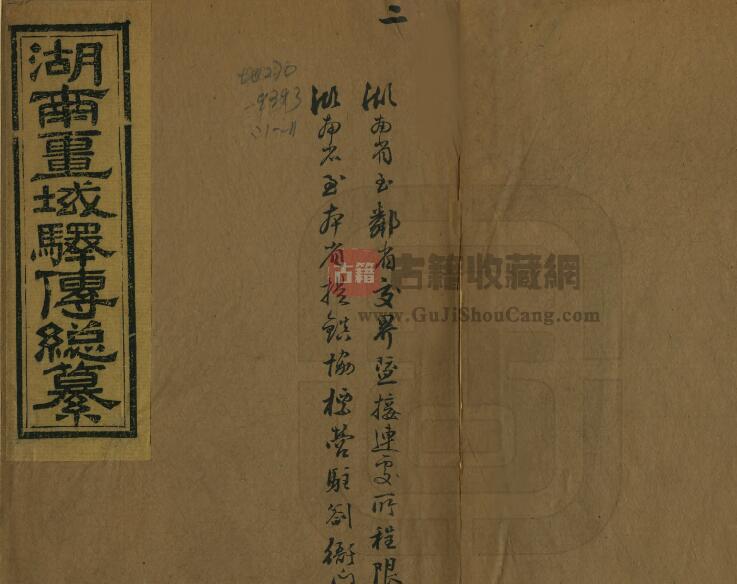 湖南畺域驛傳總纂
二
湖南省至鄰省交界暨接連處所程限
湖南省至本省提鎮協標營駐劄衙門
古籍
古籍收藏網
www.GuJiShouCang.com